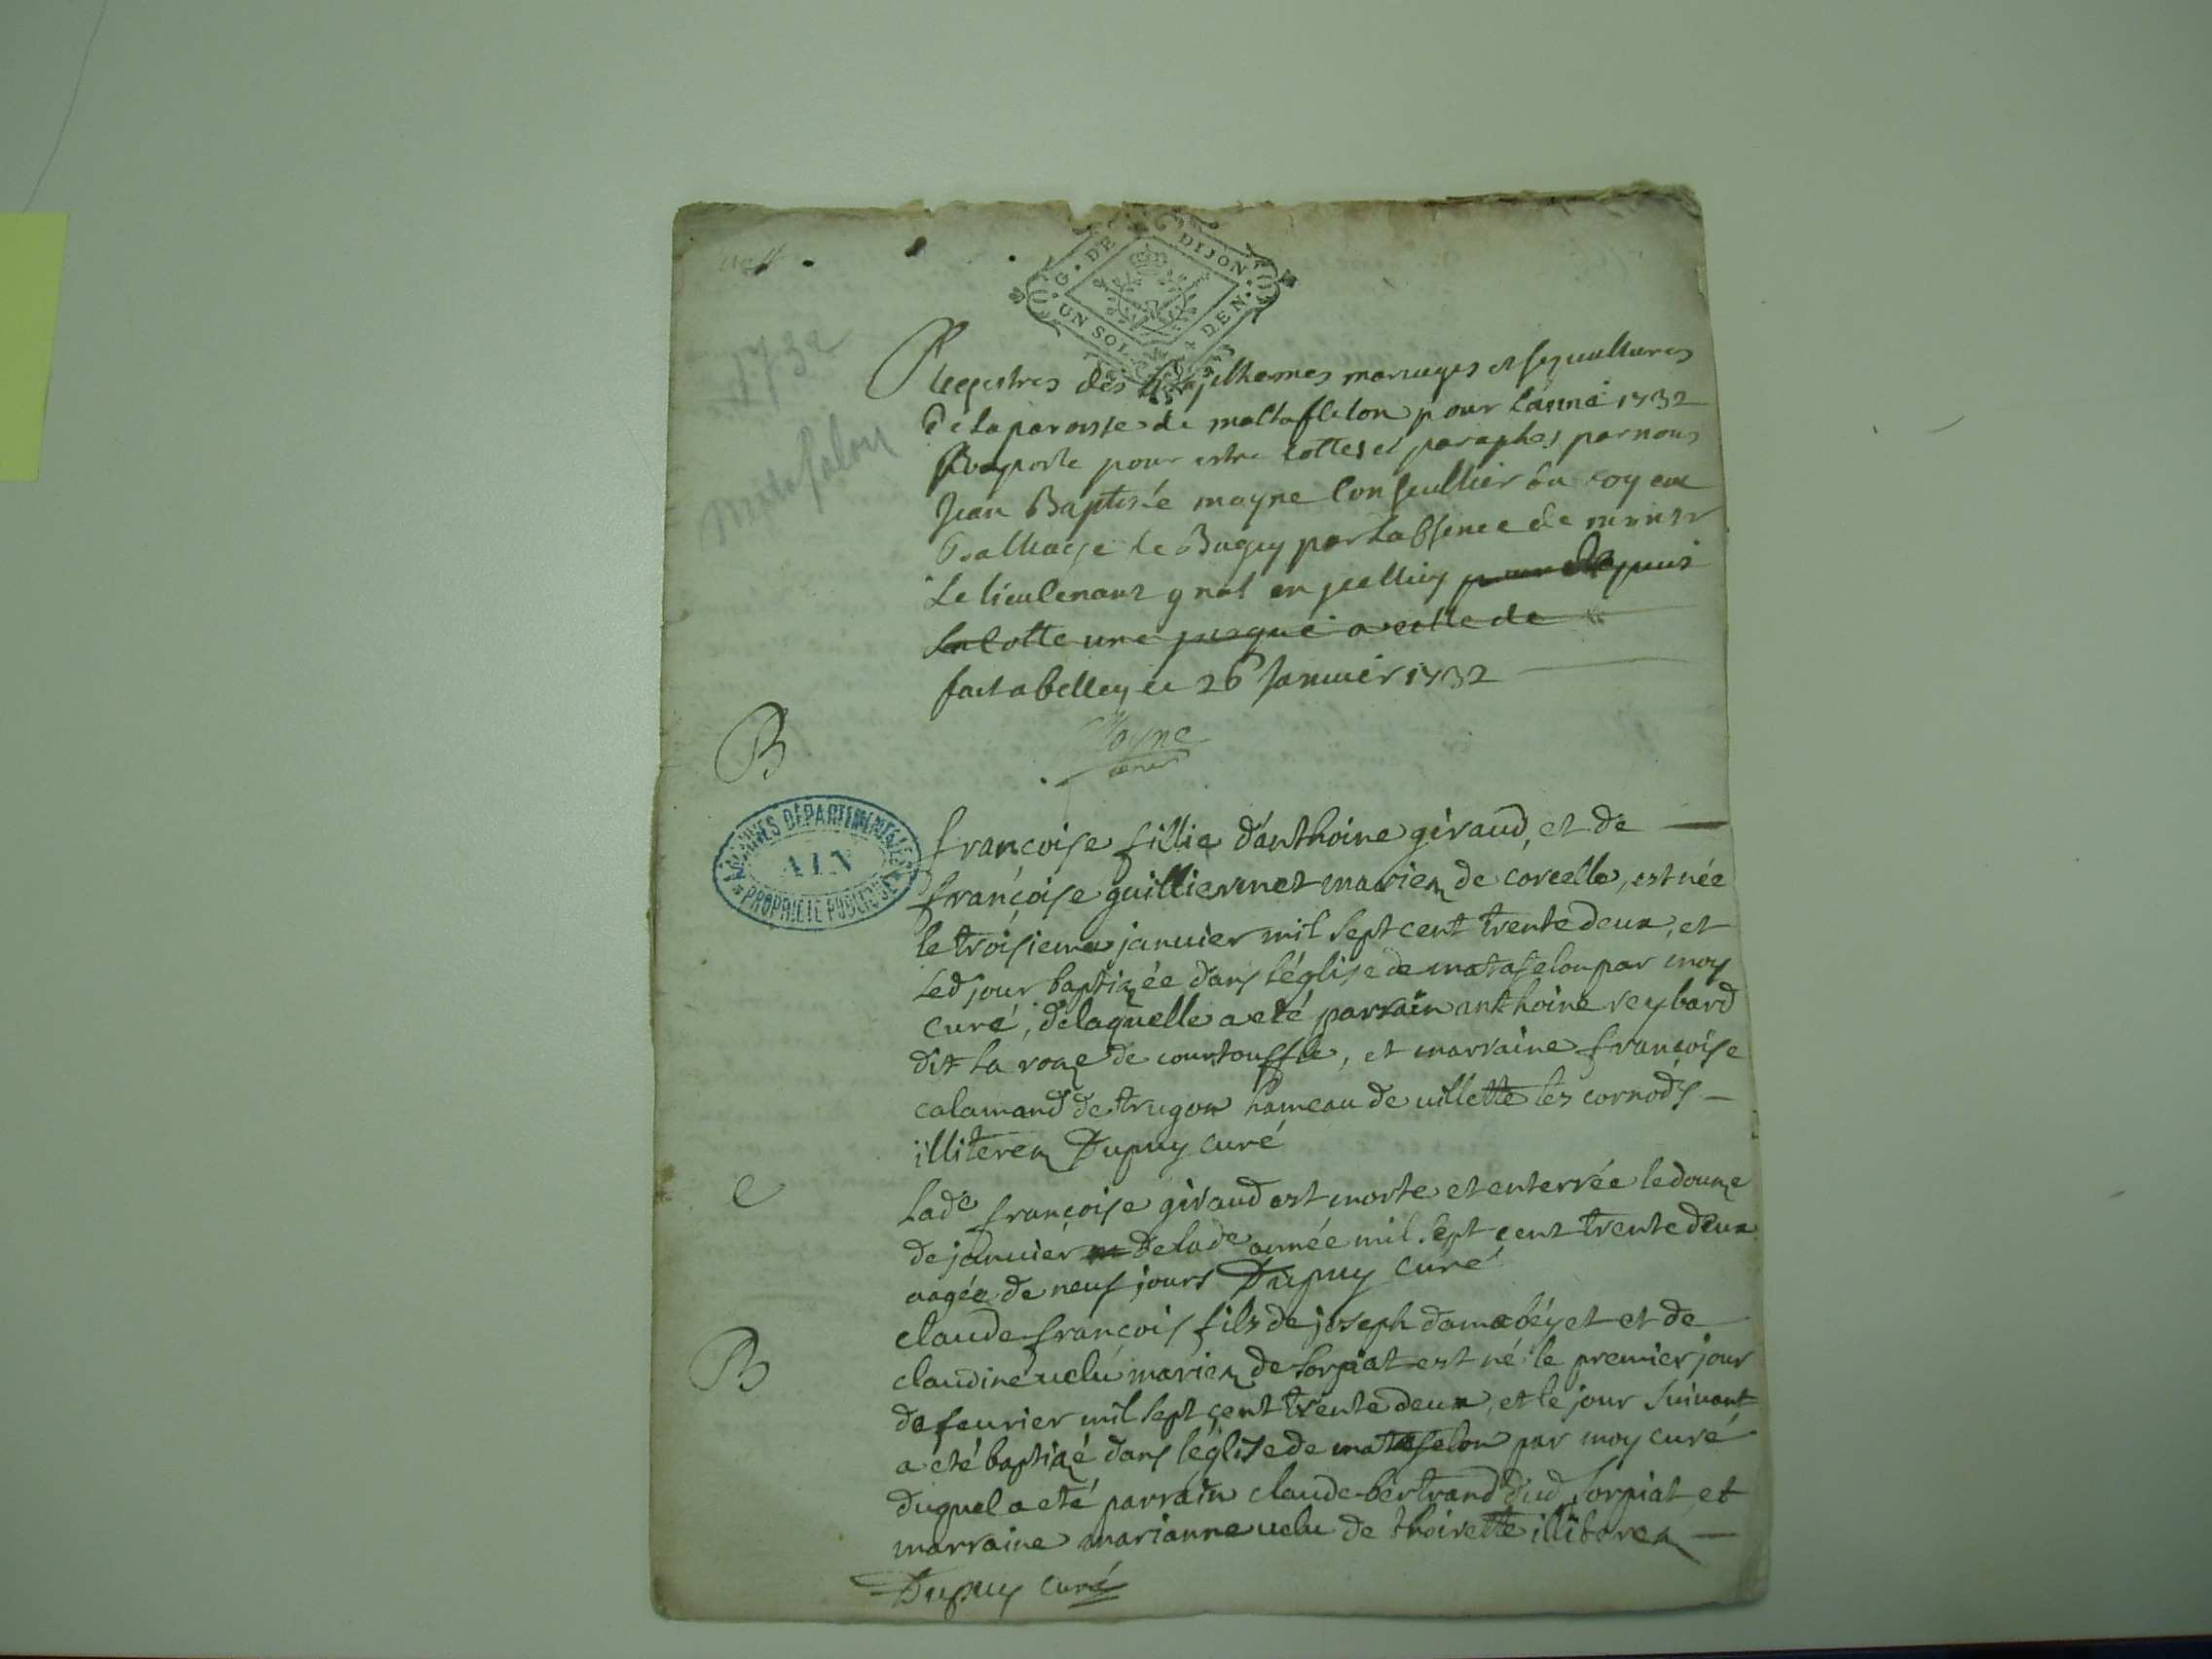 G. DE DIJON
UN SOL DEN.
1732
Matafalon
Registres des Bapthemes mariages et sepultures
de la paroisse de mattafleton pour lánné 1732
Raporte pour estre cottes et paraphes par nous
Jean Baptiste mayne Conseullier du roy au
Balliage de Bugey par labsence de monsr
Le lieutenant gnal en jcelluy pour depuis
la Cotte une jusque a celle de
fait a belley ce 26 Januier 1732
Mayne
B
ARCHIVES DÉPARTEMENTALES
AIN
PROPRIÉTÉ PUBLIQUE
françoise fillie d'anthoine géraud, et de
françoise guilliermet mariez de corcelle, est née
le troisieme januier mil sept cent trente deux, et
led jour baptizée dans l'église de matafelon par moy
curé, delaquelle a eté parrain anthoine reybard
dit la roze de courtouffle, et marraine françoise
calamand de trugon hameau de uillette les cornods
illiterez Dupuy curé
e
lade françoise géraud est morte et enterrée le douze
de januier de lade année mil sept cent trente deux
aagée de neuf jours Dupuy curé
B
claude françois fils de joseph damebéyet et de
claudine uelu mariez de sorpiat est né le premier jour
de feurier mil sept cent trente deux, et le jour suiuant
a eté baptizé dans léglise de matafelon par moy curé
duquel a eté parrain claude bertrand dud sorpiat et
marraine marianne uelu de thoirette illiterez
Dupuy curé